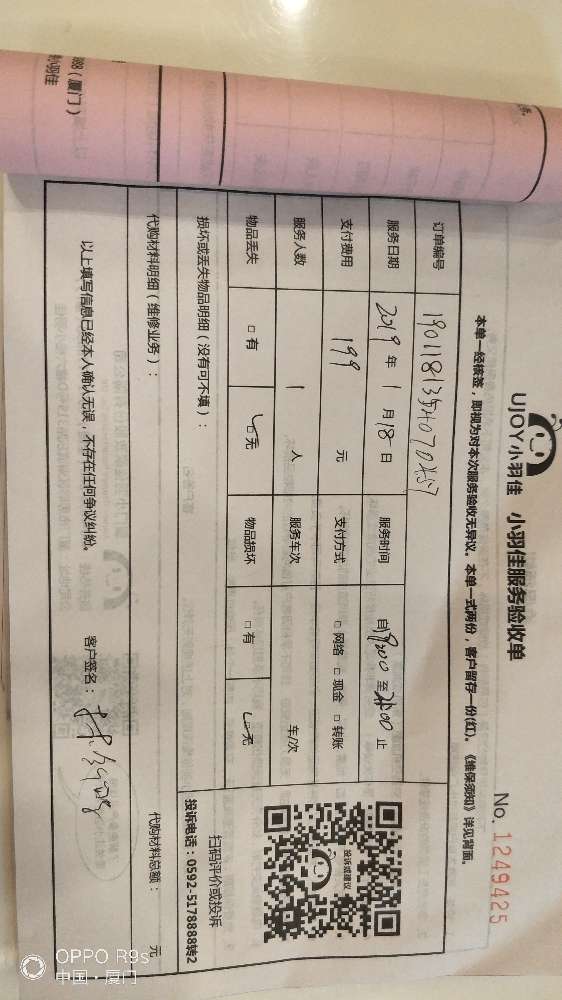 888（厦门）
小羽佳
UJOY小羽佳 小羽佳服务验收单
No. 1249425
本单一经核签，即视为对本次服务验收无异议。本单一式两份，客户留存一份(红)。《维保须知》详见背面。
订单编号
服务日期 2019 年 1 月 18 日 服务时间 自 至 止
支付费用 199 元 支付方式 □ 网络 □ 现金 □ 转账
服务人数 1 人 服务车次 车/次
物品丢失 □ 有 □ 无 物品损坏 □ 有 □ 无
投诉或建议
扫码评价或投诉
投诉电话：0592-5178888转2
损坏或丢失物品明细（没有可不填）：
代购材料明细（维修业务）： 代购材料总额： 元
以上填写信息已经本人确认无误，不存在任何争议纠纷。 客户签名：
OPPO R9s
中国·厦门